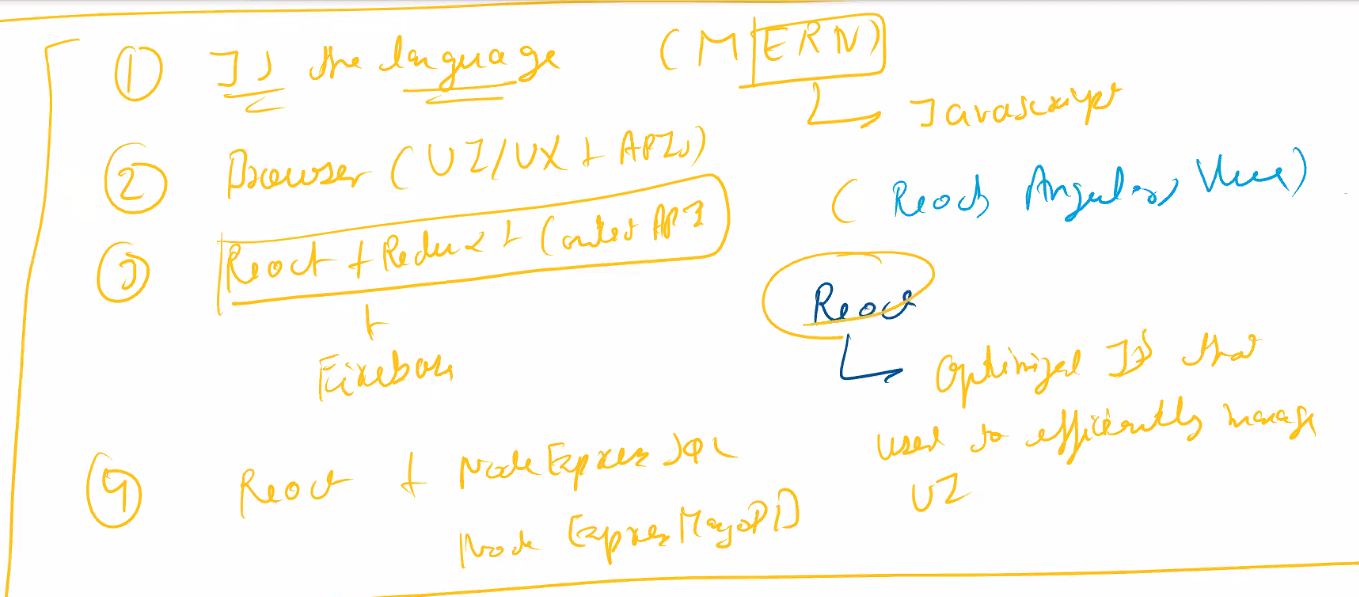 ① JS the language (MERN)
↳ Javascript
② Browser (UI/UX + APIs)
(React, Angular, Vue)
③ React + Redux + Context API
+
Firebase
React
↳ Optimized JS that
used to efficiently manage
UI
④ React + Node Express SQL
Node Express MongoDB